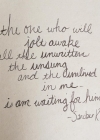 the one who will
jolt awake
all the unwritten
the unsung
and the unlived
in me.
i am waiting for him.